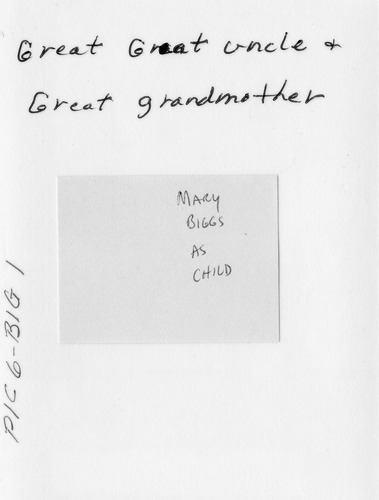 Great Great uncle +
Great grandmother
MARY
BIGGS
AS
CHILD
PIC 6-BIG 1